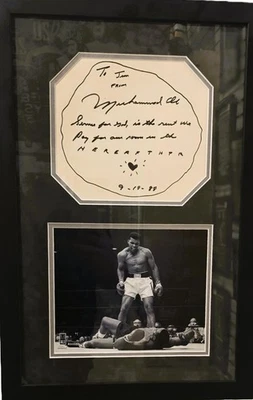 To Jim
FROM
Muhammad Ali
Service for God, is the rent we
Pay for our room in the
HEREAFTER
9-10-88